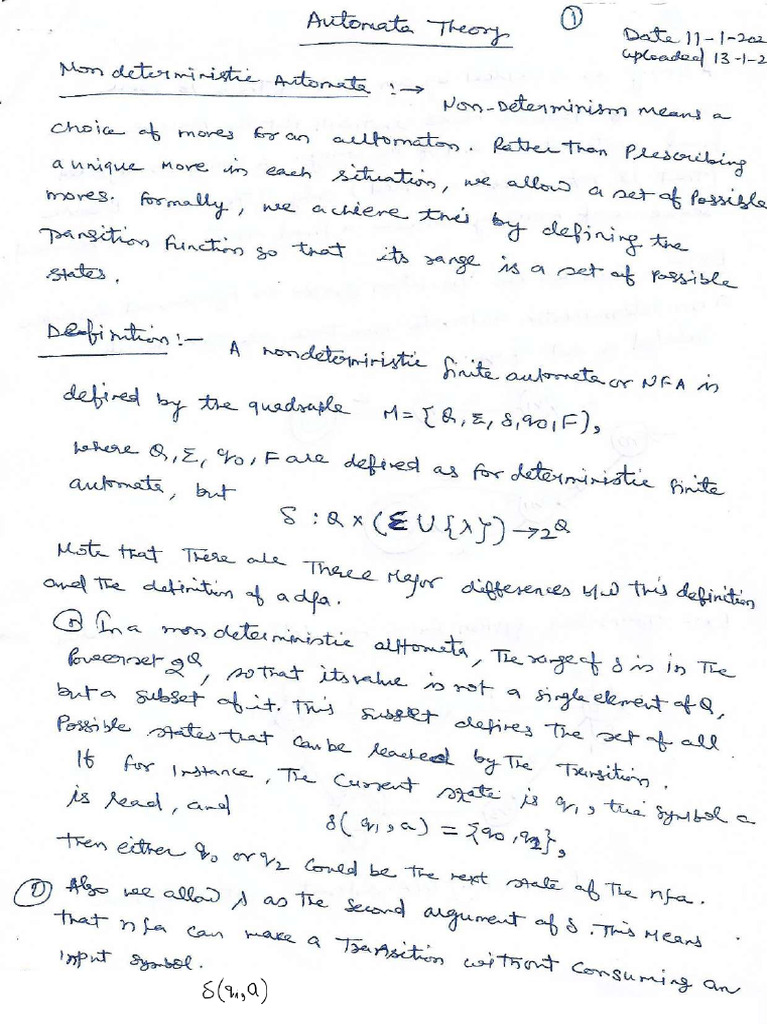 Automata Theory
①
Date 11-1-202
uploaded 13-1-2
Non deterministic Automata :→
Non-Determinism means a
choice of moves for an automaton. Rather than Prescribing
a unique move in each situation, we allow a set of Possible
moves. Formally, we achieve this by defining the
transition function so that its range is a set of possible
states.
Definition:- A nondeterministic finite automata or NFA is
defined by the quadruple M= {Q, Σ, δ, q0, F),
where Q, Σ, q0, F are defined as for deterministic finite
automata, but
δ : Q × (Σ ∪ {λ}) → 2^Q
Note that There are Three Major differences b/w This definition
and The definition of a dfa.
① In a non deterministic automata, The range of δ is in The
Powerset 2^Q, so that its value is not a single element of Q,
but a subset of it. This subset defines The set of all
Possible states that can be reached by The Transition.
If for instance, The current state is q1, the symbol a
is read, and δ(q1, a) = {q0, q2},
Then either q0 or q2 could be the next state of The nfa.
② Also we allow λ as the second argument of δ. This Means
that nfa can make a Transition without consuming an
input symbol.
δ(q1, a)